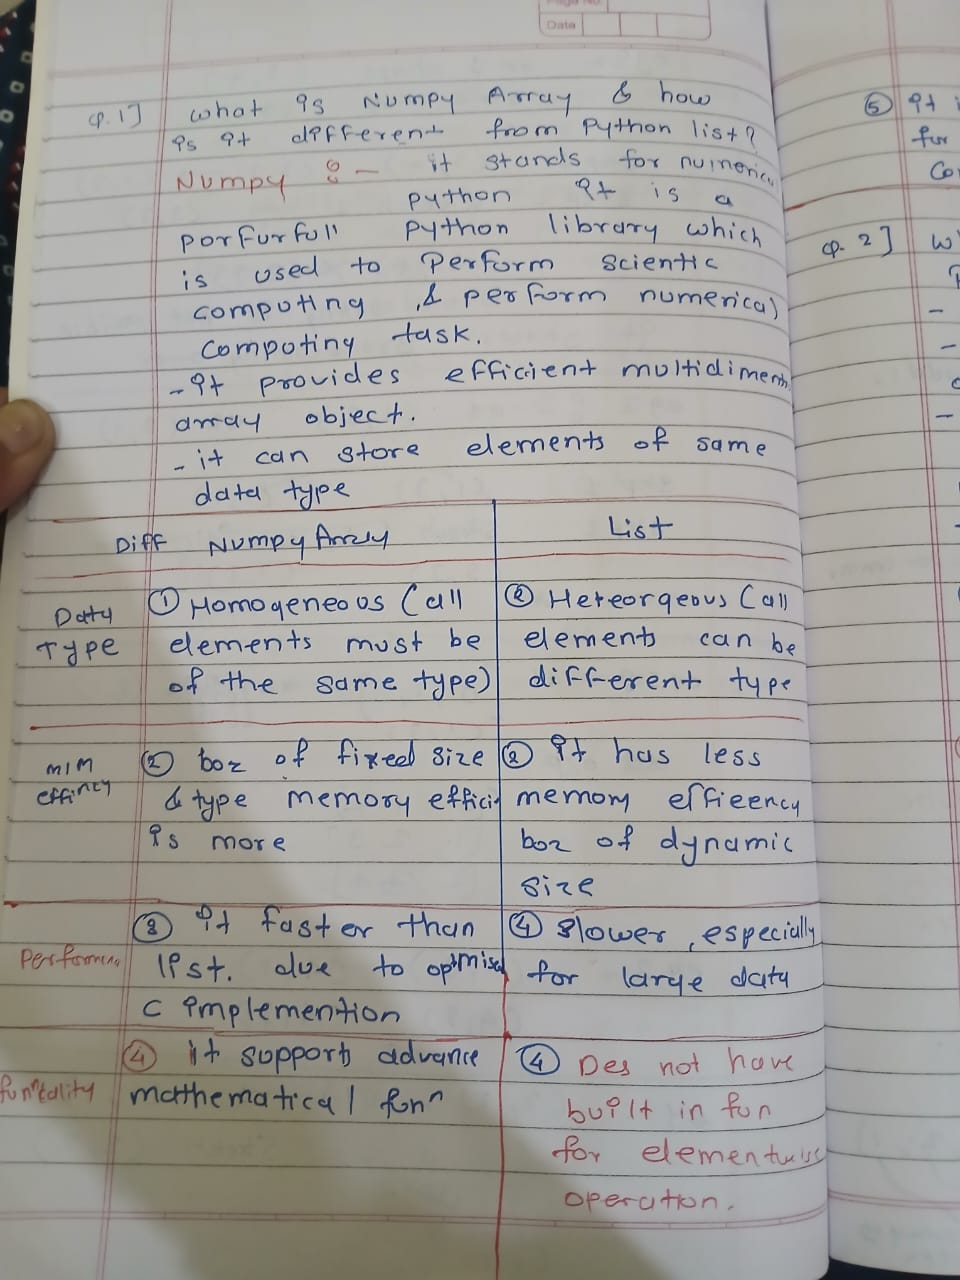 Page No.
Date
Q.1] what is Numpy Array & how
is it different from Python list?
Numpy :- it stands for numerica
python it is a
porfurfull python library which
is used to Perform scientic
computing & perform numerical
computing task.
- it provides efficient multidiment
array object.
- it can store elements of same
data type
Diff Numpy Arrey
List
Daty
Type
① Homogeneous (all
elements must be
of the same type)
② Heteorgeous (all
elements can be
different type
M/M
effincy
② boz of fixed size
& type memory effici
is more
② it has less
memory effieency
boz of dynamic
size
Performenc
③ it faster than
list. due to optmised
C implemention
④ slower, especially
for large daty
④ it support advance
mathematical funⁿ
④ Des not have
built in fun
for elementwise
operation.
⑤ it i
for
Co
Q. 2] w